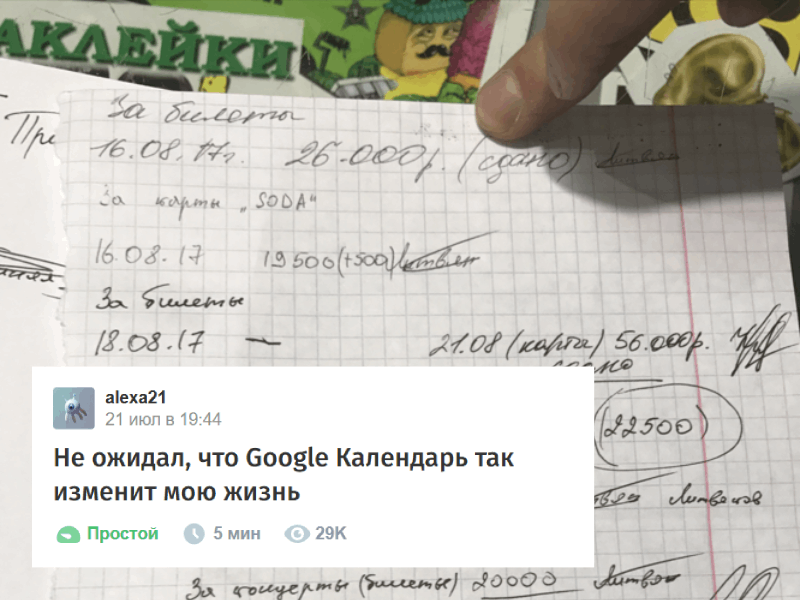 АКЛЕЙКИ
За билеты
16.08.17г. 26.000р. (сдано)
За карты „SODA"
16.08.17 19500(+500)
За билеты
18.08.17 — 21.08 (карта) 56.000р.
сдано
(22500)
alexa21
21 июл в 19:44
Не ожидал, что Google Календарь так
изменит мою жизнь
Простой 5 мин 29K
За концерты (билеты) 20000